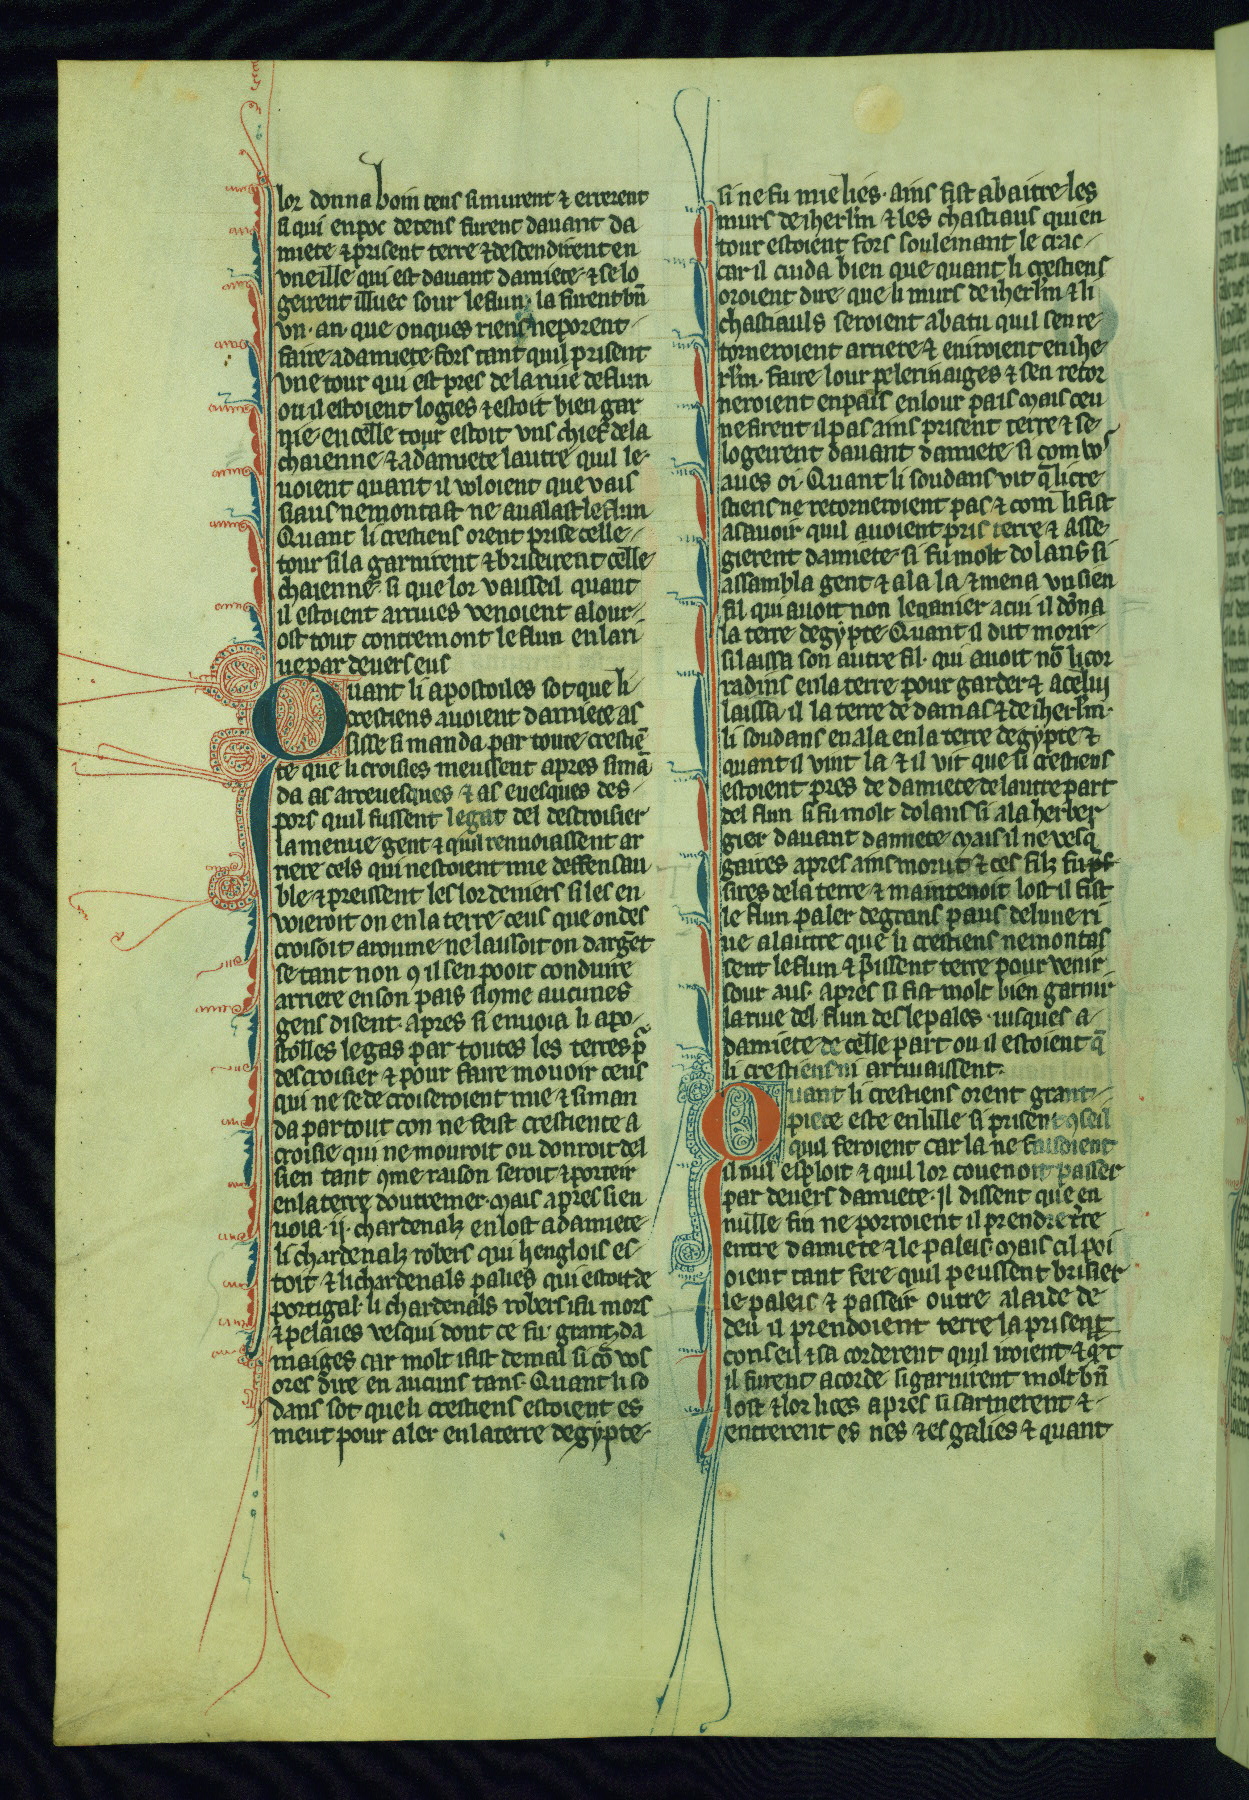 lor donna boin tens si murent ⁊ errerent
si qui en poc de tens furent dauant da
miete ⁊ prisent terre ⁊ descendirent en
vne ille qui est dauant damiete ⁊ se lo
geirent illuec sour le flun la furent bn̄
vn an que onques riens ne porent
faire a damiete fors tant quil prisent
vne tour qui est pres de la riue de flun
ou il estoient logies ⁊ estoit bien gar
nie en celle tour estoit vns chief de la
chaienne ⁊ a damiete lautre quil le
uoient quant il voloient que vais
siaus ne montast ne aualast le flun
Quant li crestiens orent prise celle
tour si la garnirent ⁊ briseirent celle
chaienne si que lor vaisseil quant
il estoient arriues venoient a lour
ost tout contremont le flun en lari
ue par deuers eus
Quant li apostoiles sot que li
crestiens auoient damiete as
sisse si manda par toute crestiē
te que li croisies meussent apres si mā
da as arceuesques ⁊ as euesques des
pors quil fussent legat del descroisier
la menue gent ⁊ quil renuoiassent ar
riere cels qui nestoient mie deffensau
ble ⁊ preissent les lor deniers si les en
voieroit on en la terre ceus que on des
croisoit a roume ne laissoit on dargēt
se tant non ꝯ il sen pooit conduire
arriere en son pais si ꝯme aucunes
gens disent. apres si enuoia li apo
stolles legas par toutes les terres pr̄
descroisier ⁊ pour faire mouoir ceus
qui ne se de croiseroient mie ⁊ si man
da par tout con ne feist crestiente a
croisie qui ne mouroit ou donroit del
sien tant ꝯme raison seroit ⁊ porteir
en la terre doutremer. mais apres si en
uoia .ij. chardenalz en lost a damiete
li chardenalz robers qui henglois es
toit ⁊ li chardenals palies qui estoit de
portigal. li chardenals robers i fu mors
⁊ pelaies vesqui dont ce fu grant da
maiges car molt i fist de mal si cō vos
ores dire en aucuns tans. Quant li so
dans sot que li crestiens estoient es
meut pour aler en la terre degypte
si ne fu mie lies. ains fist abaitre les
murs de iherl̄m ⁊ les chastiaus qui en
tour estoient fors soulemant le crac
car il cuida bien que quant li crestiens
oroient dire que li murs de iherl̄m ⁊ li
chastiauls seroient abatu quil sen re
torneroient arriere ⁊ en iroient en ihe
rl̄m. faire lour pelerinaiges ⁊ sen retor
neroient en pais en lour pais mais ceu
ne firent il pas ains prisent terre ⁊ se
logeirent dauant damiete si com vos
aues oi. Quant li soudans vit q̄ li cre
stiens ne retorneroient pas ⁊ com li fist
asauoir quil auoient pris terre ⁊ asse
gierent damiete. si fu molt dolans si
assambla gent ⁊ ala la ⁊ mena vn sien
fil qui auoit non leganier a cui il dōna
la terre degypte. Quant il dut morir
si laissa son autre fil. qui auoit nō li cor
radins en la terre pour garder ⁊ a celui
laissa il la terre de damas ⁊ de iherl̄m.
li soudans en ala en la terre degypte ⁊
quant il vint la ⁊ il vit que li crestiens
estoient pres de damiete de lautre part
del flun si fu molt dolans si ala herber
gier dauant damiete. mais il ne vesq̄
gaires apres ains morut ⁊ ces filz fu
sires de la terre ⁊ maintenoit lost il fist
le flun paler de grans paus de lune ri
ue a lautre que li crestiens ne montas
sent le flun ⁊ p̄ssent terre pour venir
sour aus. apres si fist molt bien garnir
la riue del flun des le pales. iusques a
damiete de celle part ou il estoient q̄
li crestiens ni arriuaissent.
Quant li crestiens orent grant
piece este en lille si prisent ꝯseil
quil feroient car la ne faisoient
il nul esploit ⁊ quil lor couenoit passer
par deuers damiete. Il dissent que en
nulle fin ne porroient il prendre tr̄re
entre damiete ⁊ le paleis. mais cil poi
oient tant fere quil peussent brisier
le paleis ⁊ passeir outre a laide de
deu il prendoient terre la prisent
conseil ⁊ sa corderent quil iroient ⁊ qt̄
il furent acorde. si garnirent molt bn̄
lost ⁊ lor lices apres si sarmerent ⁊
entrerent es nes ⁊ es galies ⁊ quant